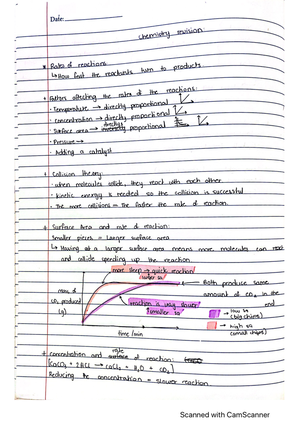 Date:
chemistry revision
* Rates of reactions
↳ How fast the reactants turn to products.
* Factors affecting the rates of the reactions:
· Temperature → directly proportional
· Concentration → directly proportional
· Surface area → directly proportional
· Pressure →
· Adding a catalyst
* Collision theory:
· when molecules collide, they react with each other
· Kinetic energy is needed so the collision is successful
· The more collisions = the faster the rate of reaction.
* Surface Area and rate of reaction:
Smaller pieces = Larger surface area
↳ Having a larger surface area means more molecules can react
and collide speeding up the reaction
more steep → quick reaction
larger sa
Both produce same
amount of CO₂ in the
end
mass of
CO₂ produced
(g)
reaction is way slower
smaller sa
low sa
(big chips)
high sa
(small chips)
time /min
* concentration and rate of reaction:
[CaCO₃ + 2HCl → CaCl₂ + H₂O + CO₂]
Reducing the concentration = slower reaction
Scanned with CamScanner